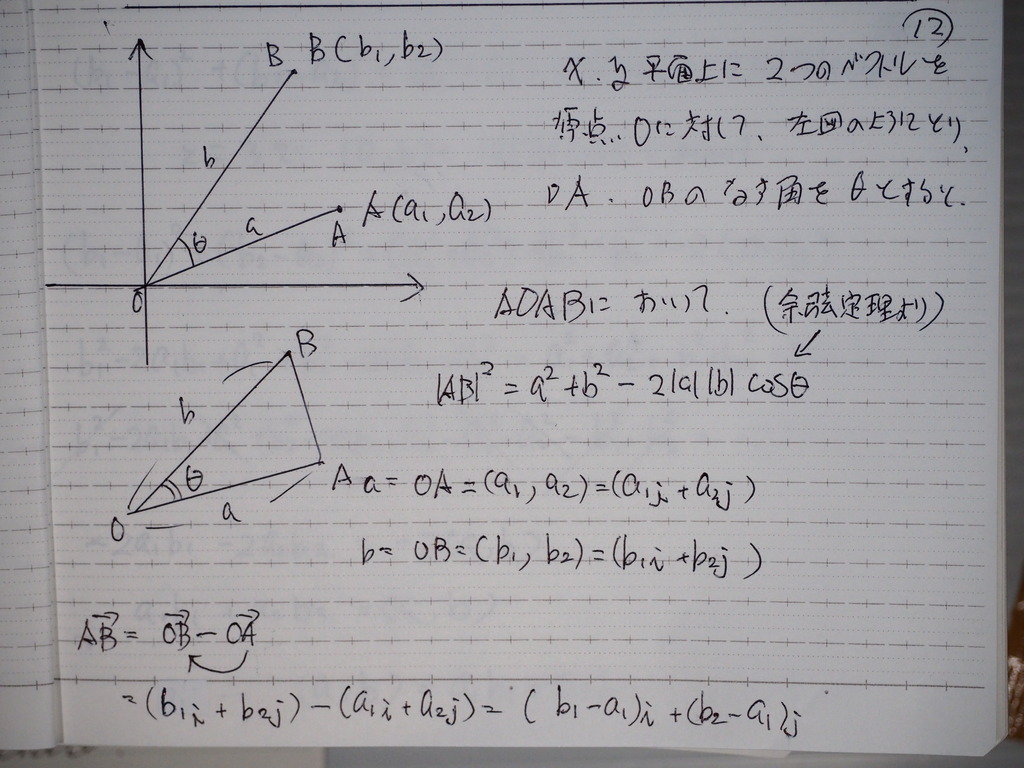 12
B B(b1,b2)
b
θ
a
A(a1,a2)
A
O
x.y平面上に2つのベクトルを
原点.Oに対して、左図のようにとり、
OA.OBのなす角をθとすると.
△OABにおいて.(余弦定理より)
|AB|² = a² + b² - 2|a||b| cosθ
B
b
θ
a
O
A
a = OA = (a1, a2) = (a1j + a2j)
b = OB = (b1, b2) = (b1i + b2j)
AB→ = OB→ - OA→
= (b1i + b2j) - (a1i + a2j) = (b1-a1)i + (b2-a1)j